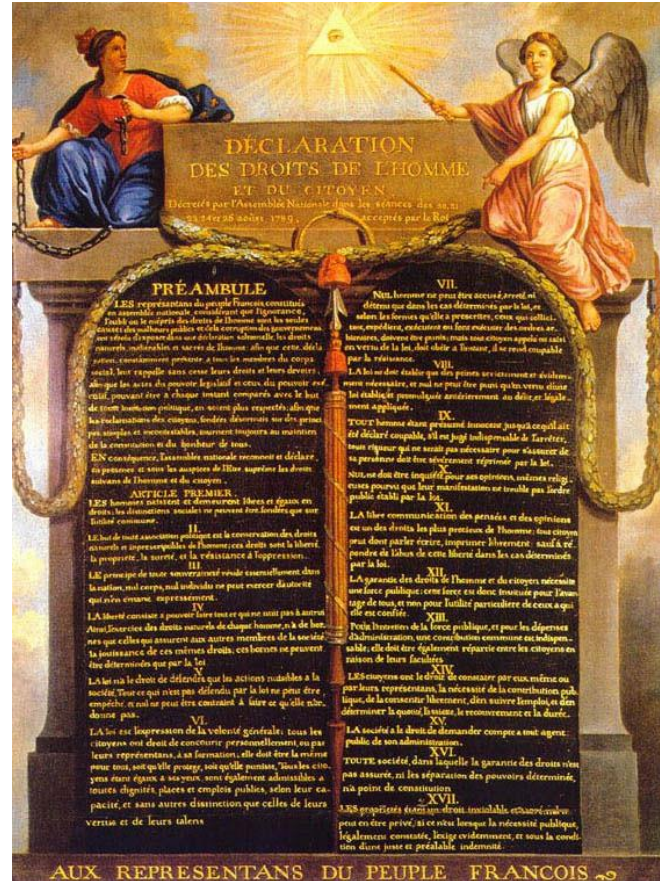 DÉCLARATION
DES DROITS DE L'HOMME
ET DU CITOYEN,
Décretés par l'Assemblée Nationale dans les séances des 20, 21
23, 24 et 26 août 1789, acceptés par le Roi
PRÉAMBULE
LES représentans du peuple Francois, constitués
en assemblée nationale, considérant que l'ignorance,
l'oubli ou le mépris des droits de l'homme sont les seules
causes des malheurs publics et de la corruption des gouvernemens
ont résolu d'exposer dans une déclaration solemnelle, les droits
naturels, inaliénables et sacrés de l'homme; afin que cette décla
ration, constamment présente a tous les membres du corps
social, leur rappelle sans cesse leurs droits et leurs devoirs
afin que les actes du pouvoir legislatif et ceux du pouvoir exé
cutif, pouvant être a chaque instant comparés avec le but
de toute institution politique, en soient plus respectés; afin que
les reclamations des citoyens, fondées désormais sur des princi
pes simples et incontestables, tournent toujours au maintien
de la constitution et du bonheur de tous.
EN conséquence, l'assemblée nationale reconnoît et déclare
en presence et sous les auspices de l'Etre suprême les droits
suivans de l'homme et du citoyen.
ARTICLE PREMIER.
LES hommes naissent et demeurent libres et égaux en
droits; les distinctions sociales ne peuvent être fondées que sur
l'utilité commune.
II.
LE but de toute association politique est la conservation des droits
naturels et imprescriptibles de l'homme; ces droits sont la liberté,
la propriété, la sureté, et la résistance à l'oppression.
III.
LE principe de toute souveraineté réside essentiellement dans
la nation, nul corps, nul individu ne peut exercer d'autorité
qui n'en emane expressément.
IV.
LA liberté consiste a pouvoir faire tout ce qui ne nuit pas à autrui
Ainsi, l'exercice des droits naturels de chaque homme, n'a de bor
nes que celles qui assurent aux autres membres de la société
la jouissance de ces mêmes droits; ces bornes ne peuvent
être déterminées que par la loi
V.
LA loi n'a le droit de défendre que les actions nuisibles a la
société. Tout ce qui n'est pas défendu par la loi ne peut être
empêché, et nul ne peut être contraint à faire ce qu'elle n'or-
donne pas.
VI.
LA loi est l'expression de la volonté générale; tous les
citoyens ont droit de concourir personnellement, ou par
leurs représentans, à sa formation; elle doit être la même
pour tous, soit qu'elle protege, soit qu'elle punisse. Tous les cito
yens étant égaux à ses yeux, sont également admissibles a
toutes dignités, places et emplois publics, selon leur ca
pacité, et sans autres distinction que celles de leurs
vertus et de leurs talens
VII.
NUL homme ne peut être accusé, arreté, ni
détenu que dans les cas déterminés par la loi, et
selon les formes qu'elle a prescrites, ceux qui sollici
tent, expédient, exécutent ou font exécuter des ordres ar
bitraires, doivent être punis; mais tout citoyen appelé ou saisi
en vertu de la loi, doit obéir a l'instant, il se rend coupable
par la résistance.
VIII.
LA loi ne doit établir que des peines strictement et évidem
ment nécessaire, et nul ne peut être puni qu'en vertu d'une
loi établie et promulguée antérierement au délit, et légale
ment appliquée.
IX.
TOUT homme étant présumé innocent jusqu'a ce qu'il ait
été déclaré coupable, s'il est jugé indispensable de l'arrêter,
toute rigueur qui ne serait pas nécessaire pour s'assurer de
sa personne doit être sévèrement réprimée par la loi.
X.
NUL ne doit être inquiété pour ses opinions, mêmes religi
euses pourvu que leur manifestation ne trouble pas l'ordre
public établi par la loi.
XI.
LA libre communication des pensées et des opinions
est un des droits les plus precieux de l'homme; tout citoyen
peut dont parler écrire, imprimer librement sauf a ré
pondre de l'abus de cette liberté dans les cas déterminés
par la loi.
XII.
LA garantie des droits de l'homme et du citoyen nécessite
une force publique; cette force est donc instituée pour l'avan
tage de tous, et non pour l'utilité particuliere de ceux a qui
elle est confiée.
XIII.
Pour l'entretien de la force publique, et pour les dépenses
d'administration, une contribution commune est indispen-
sable; elle doit être également répartie entre les citoyens en
raison de leurs facultées
XIV.
LES citoyens ont le droit de constater par eux même ou
par leurs représentans, la nécessité de la contribution pub-
lique, de la consentir librement, d'en suivre l'emploi, et d'en
déterminer la quotité, l'assiette, le recouvrement et la durée.
XV.
LA société a le droit de demander compte a tout agent
public de son administration.
XVI.
TOUTE société, dans laquelle la garantie des droits n'est
pas assurée, ni les séparation des pouvoirs déterminée,
n'a point de constitution
XVII.
LES propriétés étant un droit inviolable et sacré, nul ne
peut en être privé, si ce n'est lorsque la nécessité publique,
légalement constatée, l'exige evidemment, et sous la condi
tion d'une juste et préalable indemnité.
AUX REPRESENTANS DU PEUPLE FRANCOIS